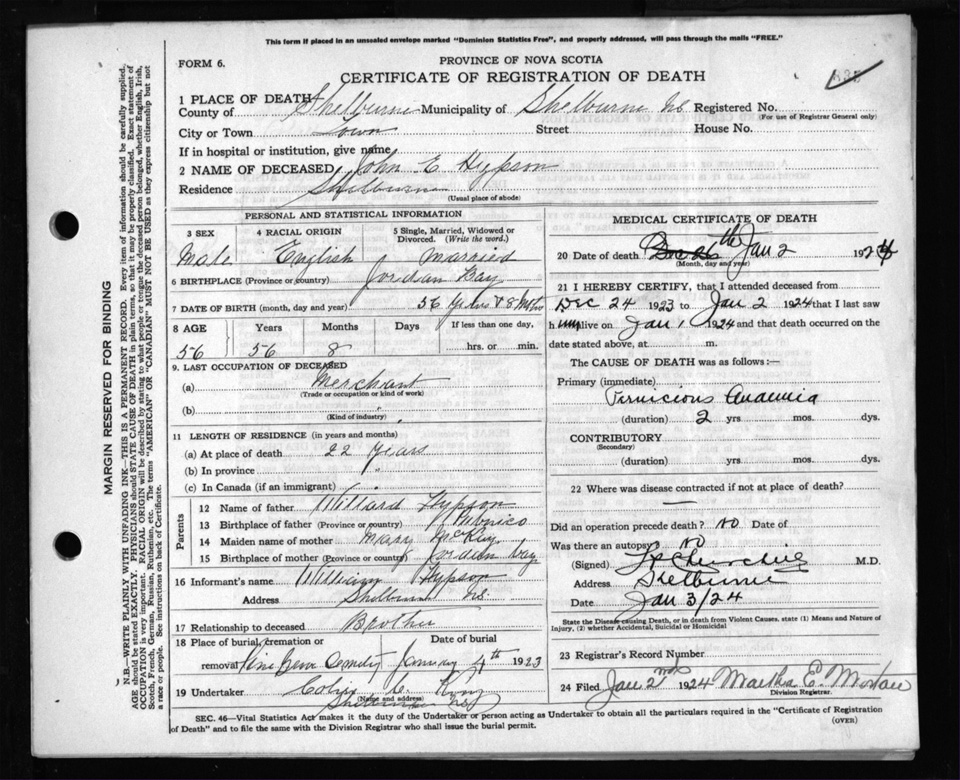 This form if placed in an unsealed envelope marked "Dominion Statistics Free", and properly addressed, will pass through the mails "FREE."
FORM 6.
PROVINCE OF NOVA SCOTIA
CERTIFICATE OF REGISTRATION OF DEATH
1 PLACE OF DEATH
County of Shelburne Municipality of Shelburne NS Registered No.
(For use of Registrar General only)
City or Town Town Street House No.
If in hospital or institution, give name
2 NAME OF DECEASED John E Hypson
Residence Shelburne
(Usual place of abode)
PERSONAL AND STATISTICAL INFORMATION
3 SEX 4 RACIAL ORIGIN 5 Single, Married, Widowed or Divorced. (Write the word.)
Male English Married
6 BIRTHPLACE (Province or country) Jordan Bay
7 DATE OF BIRTH (month, day and year) 56 Years & 8 Mths
8 AGE Years Months Days If less than one day,
56 56 8 hrs. or min.
9. LAST OCCUPATION OF DECEASED
(a) Merchant
(Trade or occupation or kind of work)
(b)
(Kind of industry)
11 LENGTH OF RESIDENCE (in years and months)
(a) At place of death 22 Years
(b) In province "
(c) In Canada (if an immigrant)
Parents
12 Name of father Willard Hypson
13 Birthplace of father (Province or country) Pubnico
14 Maiden name of mother Mary McKay
15 Birthplace of mother (Province or country) Jordan bay
16 Informant's name William Hypson
Address Shelburne NS.
17 Relationship to deceased Brother
18 Place of burial, cremation or Date of burial
removal Pine Grove Cemetry January 4th 1923
19 Undertaker Colin C
(Name and address)
Shelburne NS
MEDICAL CERTIFICATE OF DEATH
20 Date of death Dec 26th Jan 2 1924
(Month, day and year)
21 I HEREBY CERTIFY, that I attended deceased from
Dec 24 1923 to Jan 2 1924 that I last saw
h alive on Jan 1 1924 and that death occurred on the
date stated above, at m.
The CAUSE OF DEATH was as follows:—
Primary (immediate)
Pernicious Anaemia
(duration) 2 yrs. mos. dys.
CONTRIBUTORY
(Secondary)
(duration) yrs. mos. dys.
22 Where was disease contracted if not at place of death?
—
Did an operation precede death? NO Date of
Was there an autopsy? NO
(Signed) Churchill M.D.
Address Shelburne
Date Jan 3/24
State the Disease causing Death, or in death from Violent Causes, state (1) Means and Nature of
Injury, (2) whether Accidental, Suicidal or Homicidal
23 Registrar's Record Number
24 Filed Jan 2nd 1924 Martha E.
Division Registrar.
SEC. 46—Vital Statistics Act makes it the duty of the Undertaker or person acting as Undertaker to obtain all the particulars required in the "Certificate of Registration
of Death" and to file the same with the Division Registrar who shall issue the burial permit.
(OVER)
MARGIN RESERVED FOR BINDING
N.B.—WRITE PLAINLY WITH UNFADING INK—THIS IS A PERMANENT RECORD. Every item of information should be carefully supplied.
AGE should be stated EXACTLY. PHYSICIANS should STATE CAUSE OF DEATH in plain terms, so that it may be properly classified. Exact statement of
OCCUPATION is very important. RACIAL ORIGIN will be described by stating to what people or tongue the deceased person belonged, whether English, Irish,
Scotch, French, German, Russian, Ruthenian, etc. The terms "AMERICAN" OR "CANADIAN" MUST NOT BE USED as they express citizenship but not
a race or people. See instructions on back of Certificate.